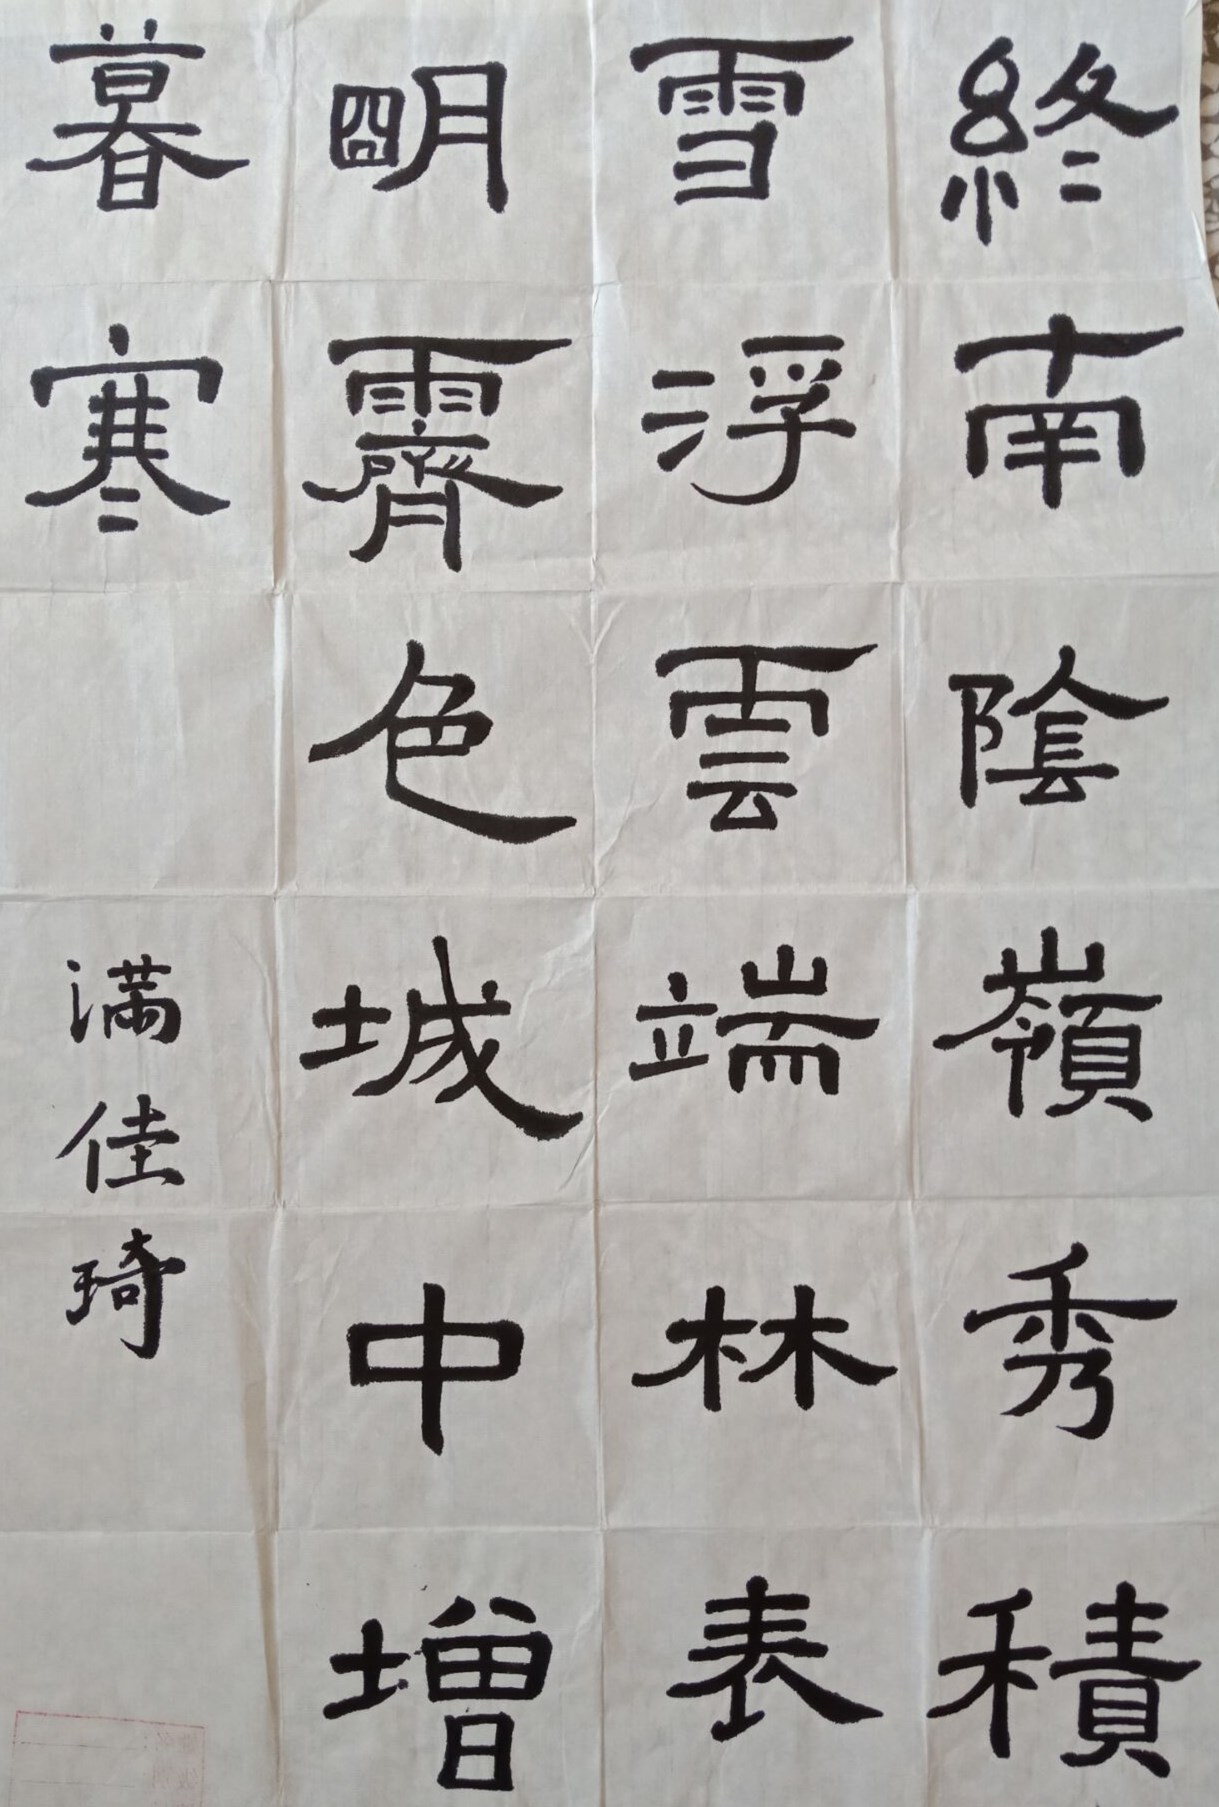 終南陰嶺秀積
雪浮雲端林表
明霽色城中增
暮寒
满佳琦